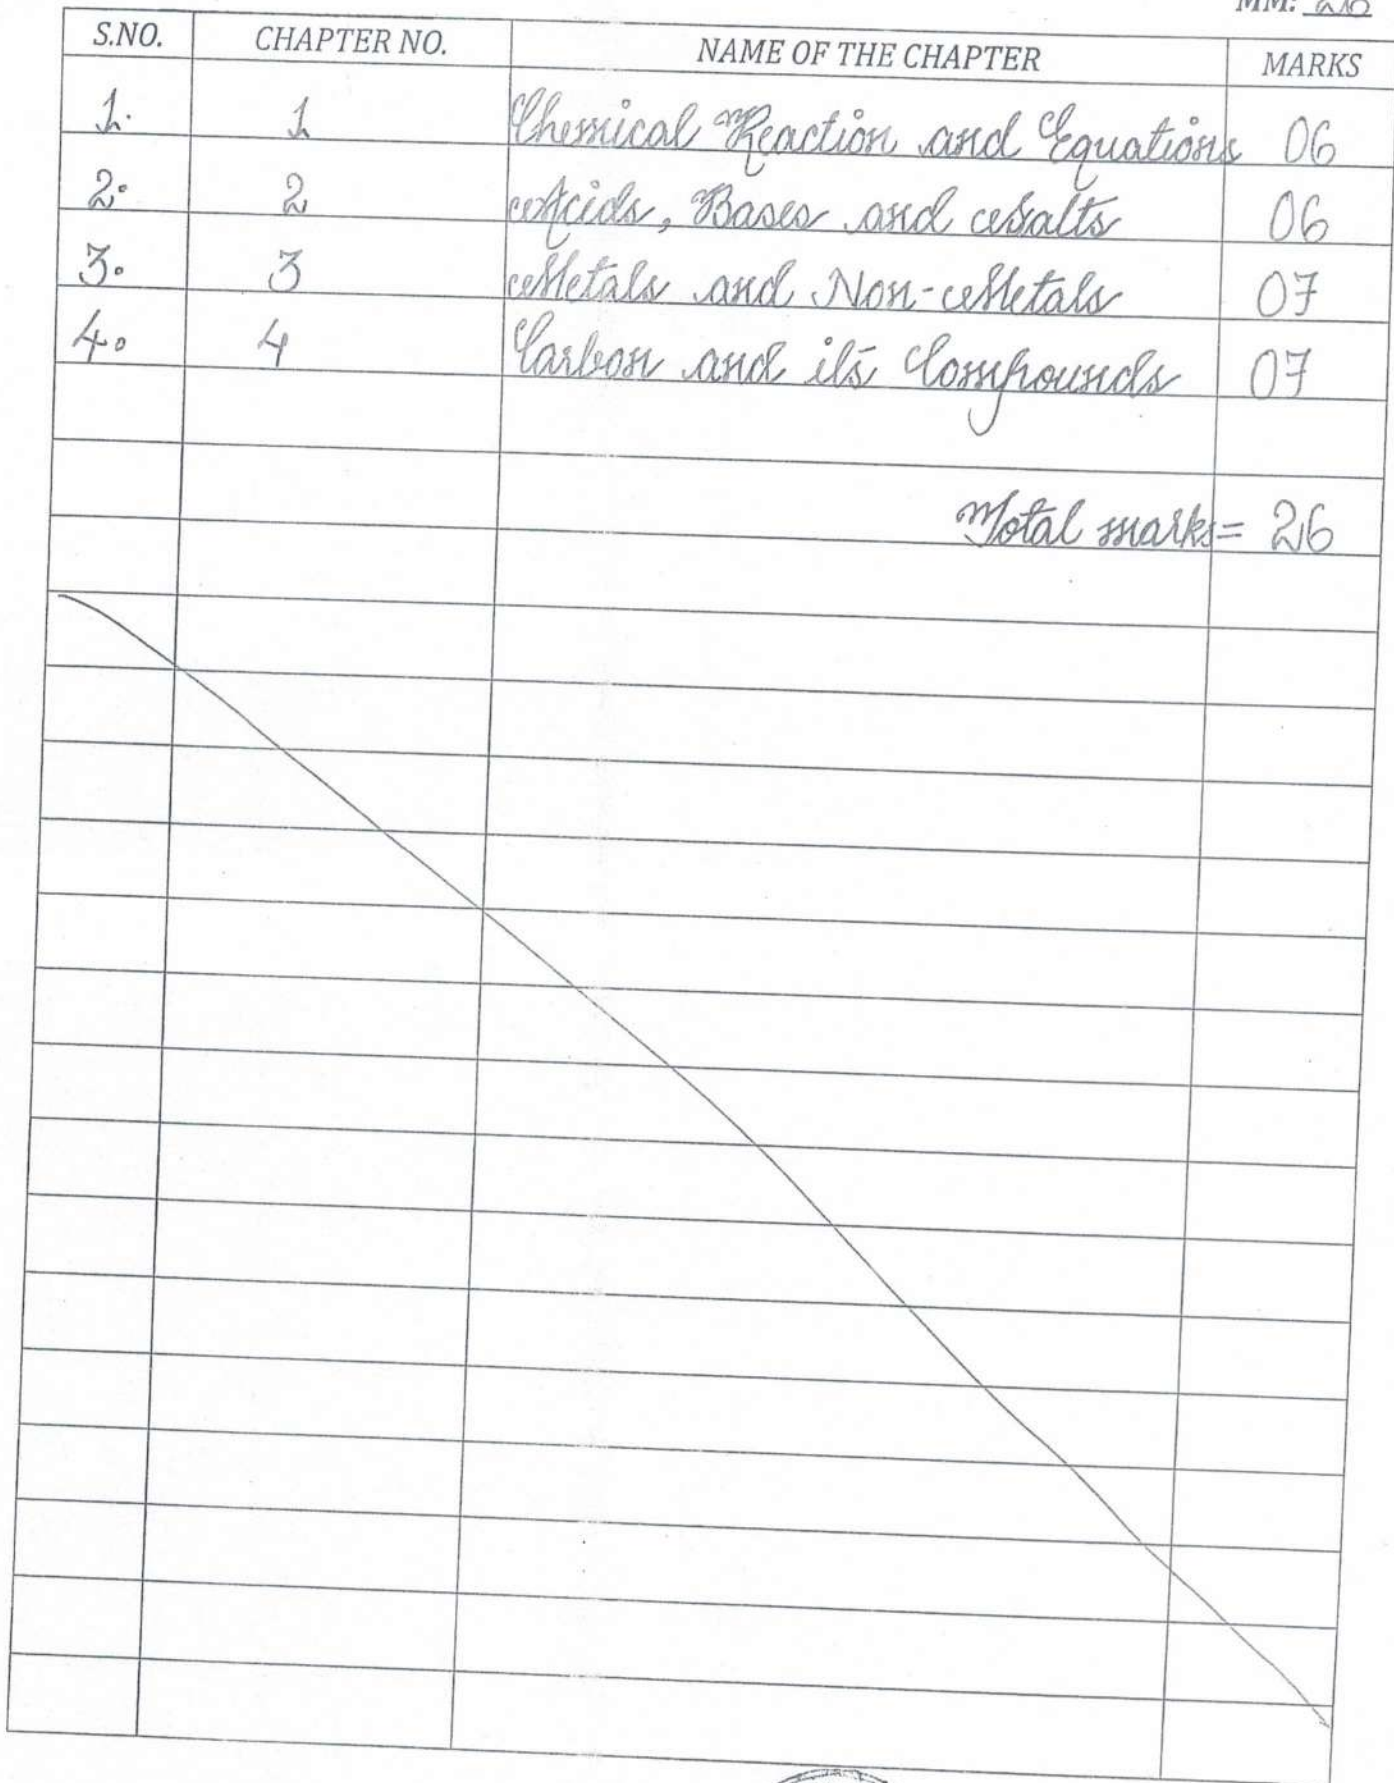 MM: 26
S.NO. CHAPTER NO. NAME OF THE CHAPTER MARKS
1. 1 Chemical Reaction and Equations 06
2. 2 Acids, Bases and Salts 06
3. 3 Metals and Non-Metals 07
4. 4 Carbon and its Compounds 07
Total marks = 26